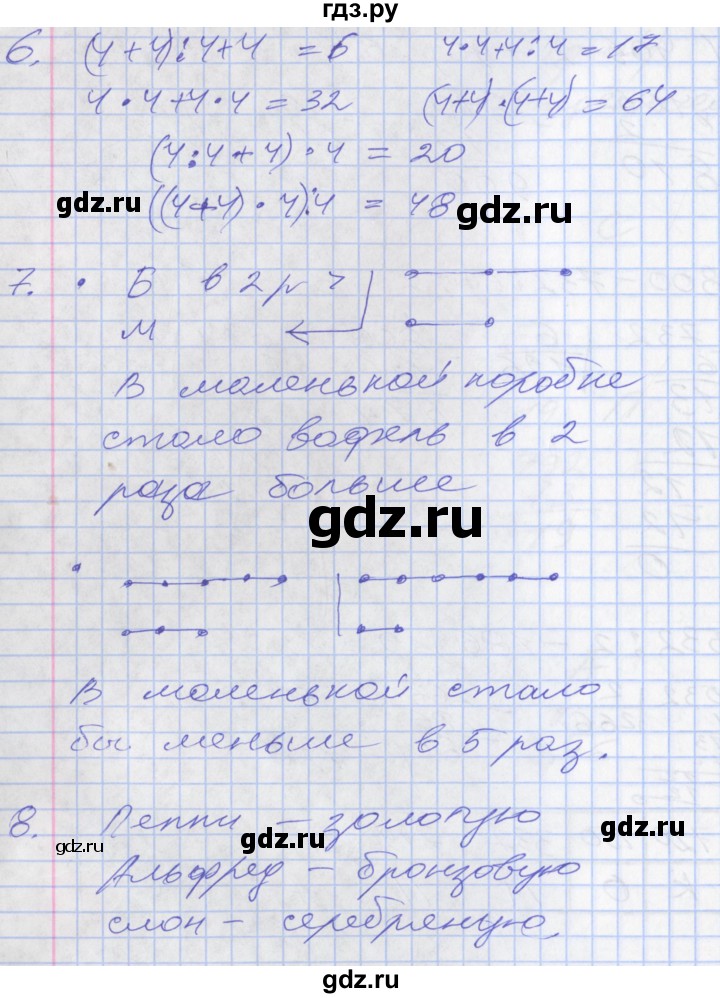 гдз.ру
6. (4+4):4+4 = 6 4·4+4:4 = 17
4·4+4·4 = 32 (4+4)·(4+4) = 64
(4:4+4)·4 = 20
gdz.ru ((4+4)·4):4 = 48 gdz.ru
7. · Б в 2 р >
М
В маленькой коробке
стало вафель в 2
раза больше
gdz.ru
В маленькой стало
бы меньше в 5 раз.
8. Пеппи – золотую
gdz.ru gdz.ru gdz.ru
Альфред – бронзовую
слон – серебряную.
gdz.ru